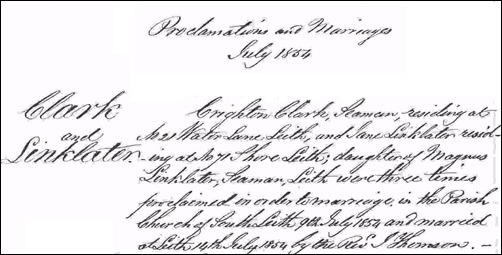 Proclamations and Marriages
July 1854
Clark
and
Linklater
Crighton Clark, Seaman, residing at
No 21 Water Lane Leith, and Jane Linklater resid-
-ing at No 71 Shore Leith; daughter of Magnus
Linklater, Seaman, Leith were three times
proclaimed in order to marriage, in the Parish
Church of South Leith 9th July 1854 and married
at Leith 14th July 1854, by the Revd J Thomson. —